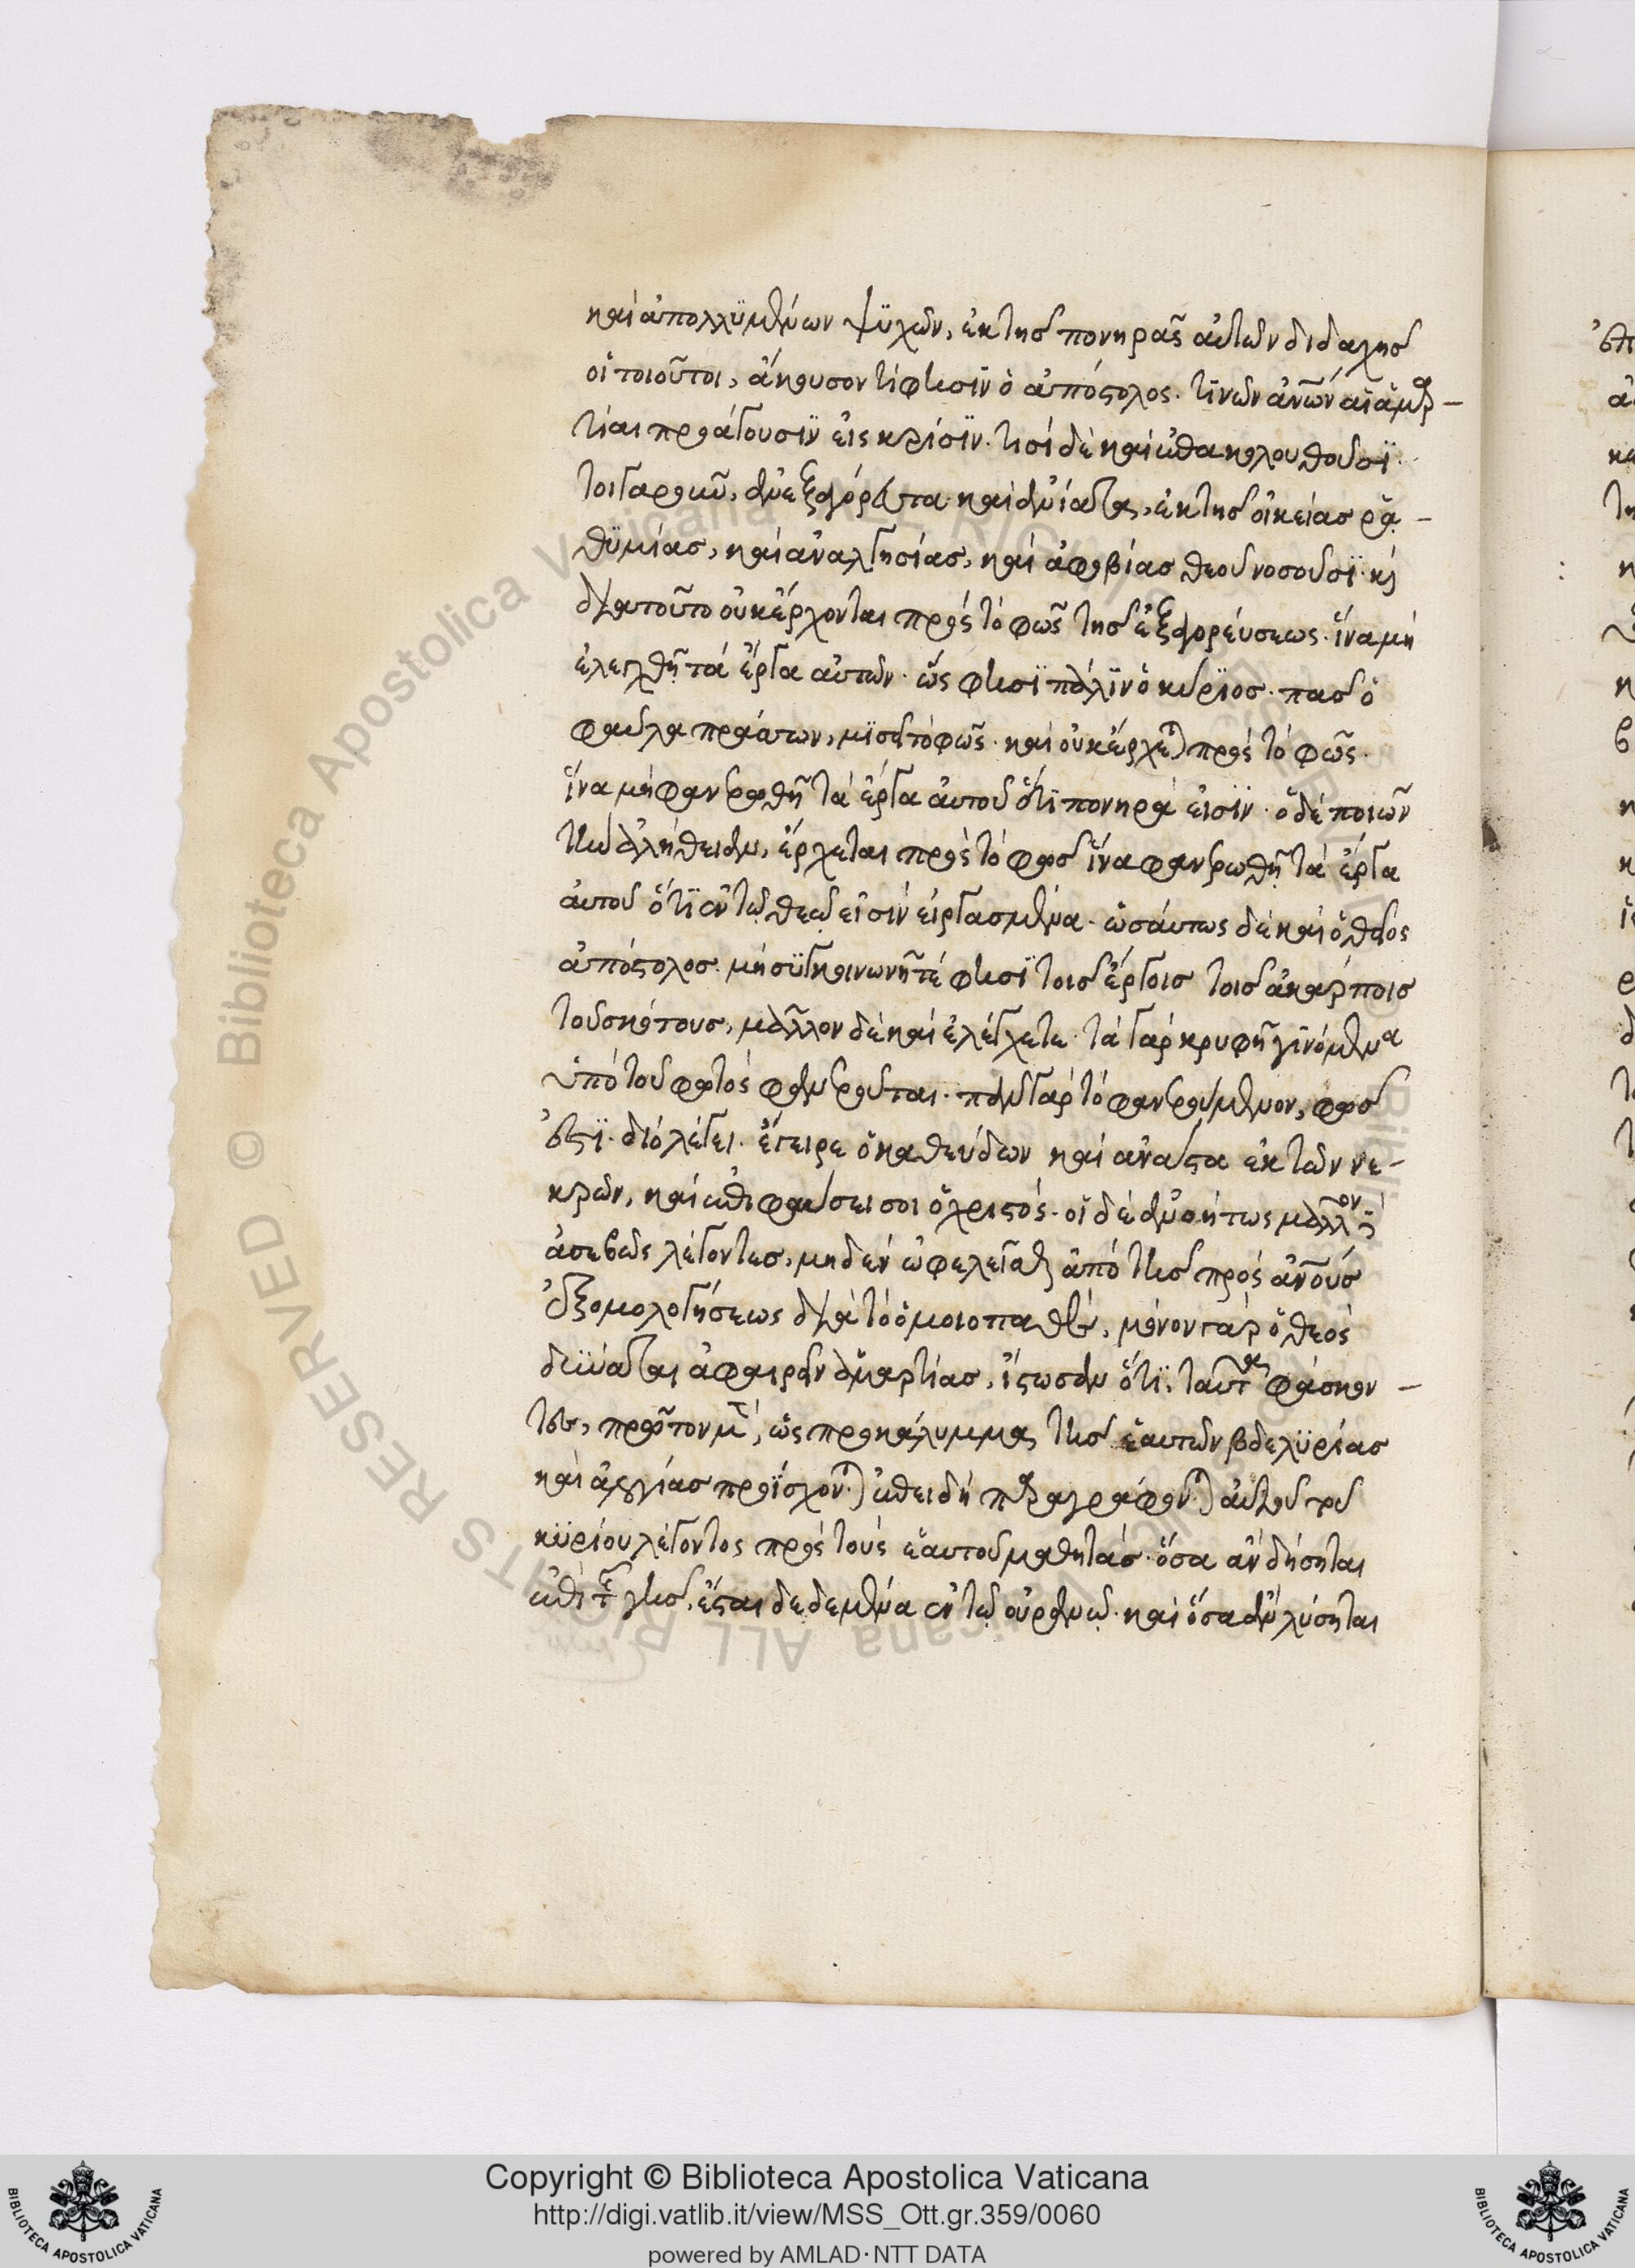 καὶ ἀπολλϋμένων ψϋχῶν, ἐκ τῆσ πονηρᾶς αὐτῶν διδαχῆσ
οἱ τοιοῦτοι, ἄκουσον τί φησϊν ὁ ἀπόστολος. τϊνῶν ἀνων αἱ ἁμαρ-
τίαι προάγουσϊν εἰς κρίσϊν. τισὶ δὲ καὶ ἐπακολουθοῦσϊ.
τοιγαροῦν, ἀνεξαγόρευτα καὶ ἀνίατα, ἐκ τῆσ οἰκείασ ρα-
θϋμίασ, καὶ ἀναλγησίασ, καὶ ἀφοβίασ θεοῦ νοσοῦσϊ. κὶ
διὰ τοῦτο οὐκ ἔρχονται πρὸς τὸ φῶς τῆσ ἐξαγορεύσεως. ἵνα μὴ
ἐλεγχθῆ τὰ ἔργα αὐτῶν. ὥς φησϊ πάλϊν ὁ κύρϊοσ. πᾶσ ὁ
φαῦλα πράττων, μϊσεῖ τὸ φῶς. καὶ οὐκ ἔρχεται πρὸς τὸ φῶς.
ἵνα μὴ φανερωθῆ τὰ ἔργα αὐτοῦ ὅτϊ πονηρά εἰσϊν. ὁ δὲ ποιῶν
τὴν ἀλήθειαν, ἔρχεται πρὸς τὸ φῶσ ἵνα φανερωθῆ τὰ ἔργα
αὐτοῦ ὅτϊ ἐν τῷ θεῷ εἰσὶν εἰργασμένα. ὡσάυτως δὲ καὶ ὁ θεῖος
ἀπόστολοσ. μὴ σϋγκοινωνῆτέ φησϊ τοῖσ ἔργοισ τοῖσ ἀκάρποισ
τοῦ σκότουσ, μᾶλλον δὲ καὶ ἐλέγχετε. τὰ γὰρ κρυφῆ γϊνόμενα
ὑπὸ τοῦ φωτὸς φανεροῦται. πᾶν γὰρ τὸ φανερούμενον, φῶσ
ἐστϊ. διὸ λέγει. ἔγειρε ὁ καθεύδων καὶ ἀνάστα ἐκ τῶν νε-
κρῶν, καὶ ἐπιφαύσει σοι ὁ χριστός. οἱ δὲ ἀνοήτως μᾶλλον ἢ
ἀσεβῶς λέγοντεσ, μηδὲν ὠφελεῖσθαι ἀπὸ τῆσ πρὸς ἀνουσ
ἐξομολογήσεως διὰ τὸ ὁμοιοπαθὲς, μόνον γὰρ ὁ θεὸς
δϋναται ἀφαιρεῖν ἁμαρτίασ, ἴστωσαν ὅτϊ, ταῦτα φάσκον-
τες, πρῶτον μὲν, ὡς προκάλυμμα τῆσ ἑαυτῶν βδελϋρίασ
καὶ ἀπιστίασ προϊσχονται ἐπειδὴ παραγράφονται αὐτοῦ τοῦ
κϋρίου λέγοντος πρὸς τοὺς ἑαυτοῦ μαθητάσ. ὅσα ἂν δήσηται
ἐπὶ τῆς γῆσ, ἔσται δεδεμένα ἐν τῷ οὐρανῷ. καὶ ὅσα ἂν λύσηται
Copyright © Biblioteca Apostolica Vaticana
http://digi.vatlib.it/view/MSS_Ott.gr.359/0060
powered by AMLAD·NTT DATA
BIBLIOTECA APOSTOLICA VATICANA
BIBLIOTECA APOSTOLICA VATICANA